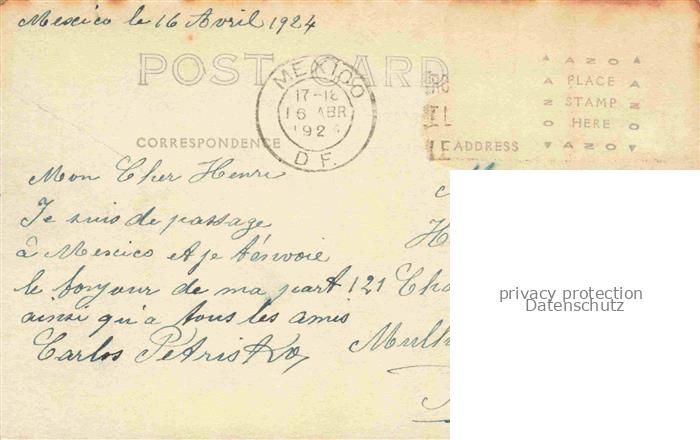 Mexico le 16 Avril 1924
POST CARD
MEXICO
17-18
16 ABR
192
D. F.
AZO
PLACE
STAMP
HERE
AZO
CORRESPONDENCE
ADDRESS
Mon Cher Henri
Je suis de passage
à Mexico et je t'envoie
le bonjour de ma part
ainsi qu'a tous les amis
Carlos
121
privacy protection
Datenschutz